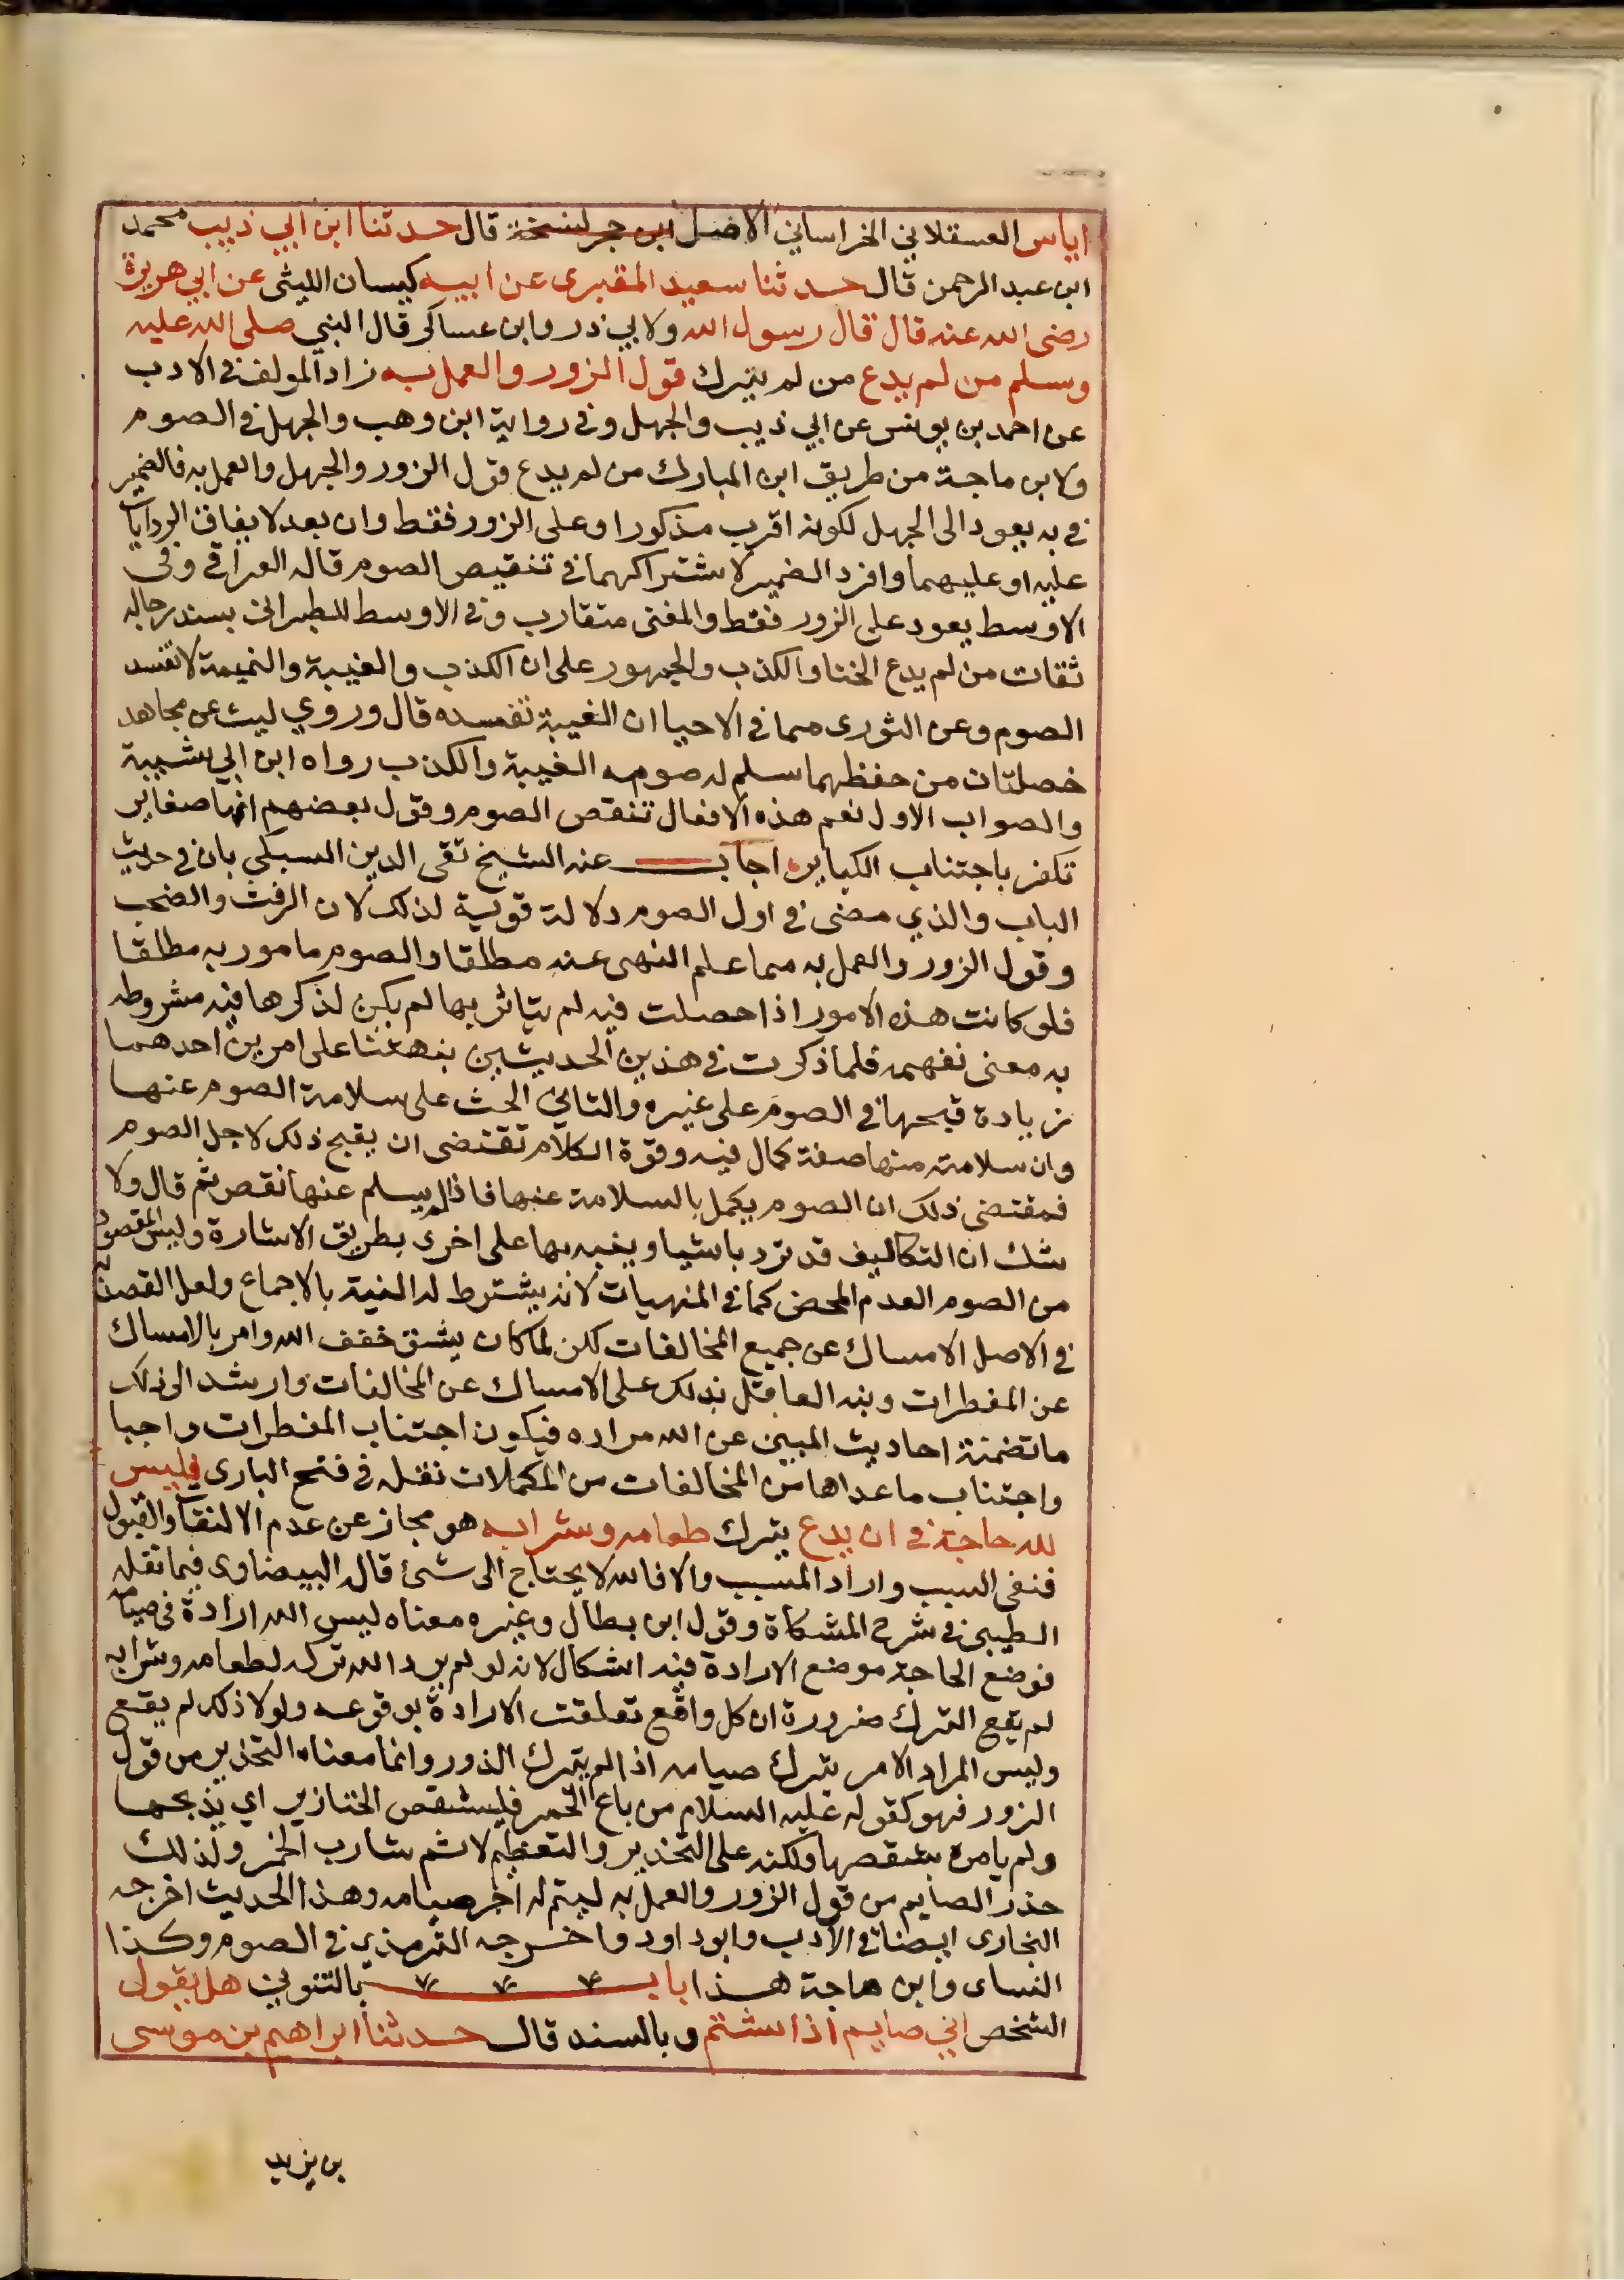 اياس العسقلاني الخراساني الاصل ابن حجر لنسخة قال حدثنا ابن ابي ذيب محمد
ابن عبد الرحمن قال حدثنا سعيد المقبرى عن ابيه كيسان الليثى عن ابي هريرة
رضى الله عنه قال قال رسول الله ولابي ذر وابن عساكر قال النبي صلى الله عليه
وسلم من لم يدع من لم يترك قول الزور والعمل به زاد المولف فى الادب
عن احمد بن يونس عن ابي ذيب والجهل وفى رواية ابن وهب والجهل فى الصوم
ولابن ماجة من طريق ابن المبارك من لم يدع قول الزور والجهل والعمل به فالضمير
فى به يعود الى الجهل لكونه اقرب مذكورا وعلى الزور فقط وان بعد لا تفاق الروايات
عليه او عليهما وافرد الضمير لاشتراكهما فى تنقيص الصوم قاله العراقى وفى
الاوسط يعود على الزور فقط والمعنى متقارب وفى الاوسط للطبرانى بسند رجاله
ثقات من لم يدع الخنا والكذب والجمهور على ان الكذب والغيبة والنميمة لا تفسد
الصوم وعن الثورى مما فى الاحيا ان الغيبة تفسده قال وروي ليث عن مجاهد
خصلتان من حفظهما سلم له صومه الغيبة والكذب رواه ابن ابي شيبة
والصواب الاول نعم هذه الافعال تنقص الصوم وقول بعضهم انها صغاير
تكفر باجتناب الكباير اجاب عنه الشيخ تقى الدين السبكي بان فى حديث
الباب والذي مضى فى اول الصوم دلالة قوية لذلك لان الرفث والصخب
وقول الزور والعمل به مما علم النهى عنه مطلقا والصوم مامور به مطلقا
فلو كانت هذه الامور اذا حصلت فيه لم يتاثر بها لم يكن لذكرها فيه مشروطه
به معنى نفهمه فلما ذكرت فى هذين الحديثين نبهتنا على امرين احدهما
زيادة قبحها فى الصوم على غيره والثاني الحث على سلامة الصوم عنها
وان سلامته منها صفة كمال فيه وقوة الكلام تقتضى ان يقبح ذلك لاجل الصوم
فمقتضى ذلك ان الصوم يكمل بالسلامة عنها فاذا لم يسلم عنها نقص ثم قال ولا
شك ان التكاليف قد ترد باشيا وينبه بها على اخرى بطريق الاشارة وليس المقصود
من الصوم العدم المحض كما فى المنهيات لانه يشترط له النية بالاجماع ولعل القصد به
فى الاصل الامساك عن جميع المخالفات لكن لما كان يشق خفف الله وامر بالامساك
عن المفطرات ونبه العاقل بذلك على الامساك عن المخالفات وارشد الى ذلك
ما تضمنته احاديث المبين عن الله مراده فيكون اجتناب المفطرات واجبا
واجتناب ما عداها من المخالفات من المكملات نقله فى فتح البارى فليس
لله حاجة فى ان يدع يترك طعامه وشرابه هو مجاز عن عدم الالتفات والقبول
فنفى السبب واراد المسبب والا فالله لا يحتاج الى شئ قاله البيضاوى فيما نقله
الطيبي فى شرح المشكاة وقول ابن بطال وغيره معناه ليس لله ارادة فى صيامه
فوضع الحاجة موضع الارادة فيه اشكال لانه لو لم يرد الله تركه لطعامه وشرابه
لم يقع الترك ضرورة ان كل واقع تعلقت الارادة بوقوعه ولولا ذلك لم يقع
وليس المراد الامر بترك صيامه اذا لم يترك الزور وانما معناه التحذير من قول
الزور فهو كقوله عليه السلام من باع الخمر فليشقص الخنازير اي يذبحها
ولم يامره بشقصها ولكنه على التحذير والتعظيم لاثم شارب الخمر ولذلك
حذر الصايم من قول الزور والعمل به ليتم له اجر صيامه وهذا الحديث اخرجه
البخارى ايضا فى الادب وابو داود واخرجه الترمذي فى الصوم وكذا
النساى وابن ماجة هذا باب بالتنوين هل يقول
الشخص اني صايم اذا شتم وبالسند قال حدثنا ابراهيم بن موسى
بن يزيد